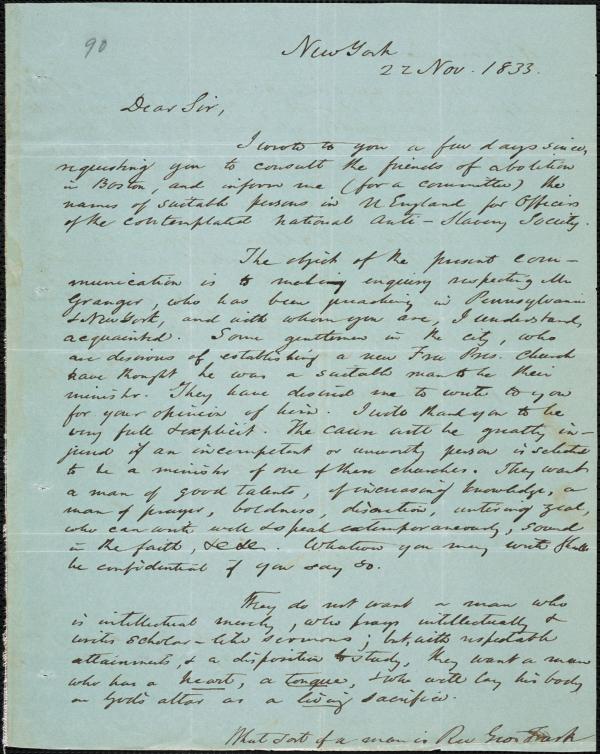 90
New York
22 Nov. 1833.
Dear Sir,
I wrote to you a few days since,
requesting you to consult the friends of abolition
in Boston, and inform me (for a committee) the
names of suitable persons in N England for Officers
of the contemplated National Anti-Slavery Society.
The object of the present com-
munication is to making enquiry respecting Mr
Granger, who has been preaching in Pennsylvania
& New York, and with whom you are, I understand,
acquainted. Some gentlemen in the city, who
are desirous of establishing a new Free Pres. Church
have thought he was a suitable man to be their
minister. They have desired me to write to you
for your opinion of him. I will thank you to be
very full & explicit. The cause will be greatly in-
jured if an incompetent or unworthy person is selected
to be a minister of one of these churches. They want
a man of good talents, of increasing knowledge, a
man of prayer, boldness, discretion, untiring zeal,
who can write well & speak extemporaneously, sound
in the faith, &c &c. Whatever you may write shall
be confidential if you say so.
They do not want a man who
is intellectual merely, who prays intellectually &
writes scholar-like sermons; but, with respectable
attainments, & a disposition to study, they want a man
who has a heart, a tongue, & who will lay his body
on God's altar as a living sacrifice.
What sort of a man is Rev Geo